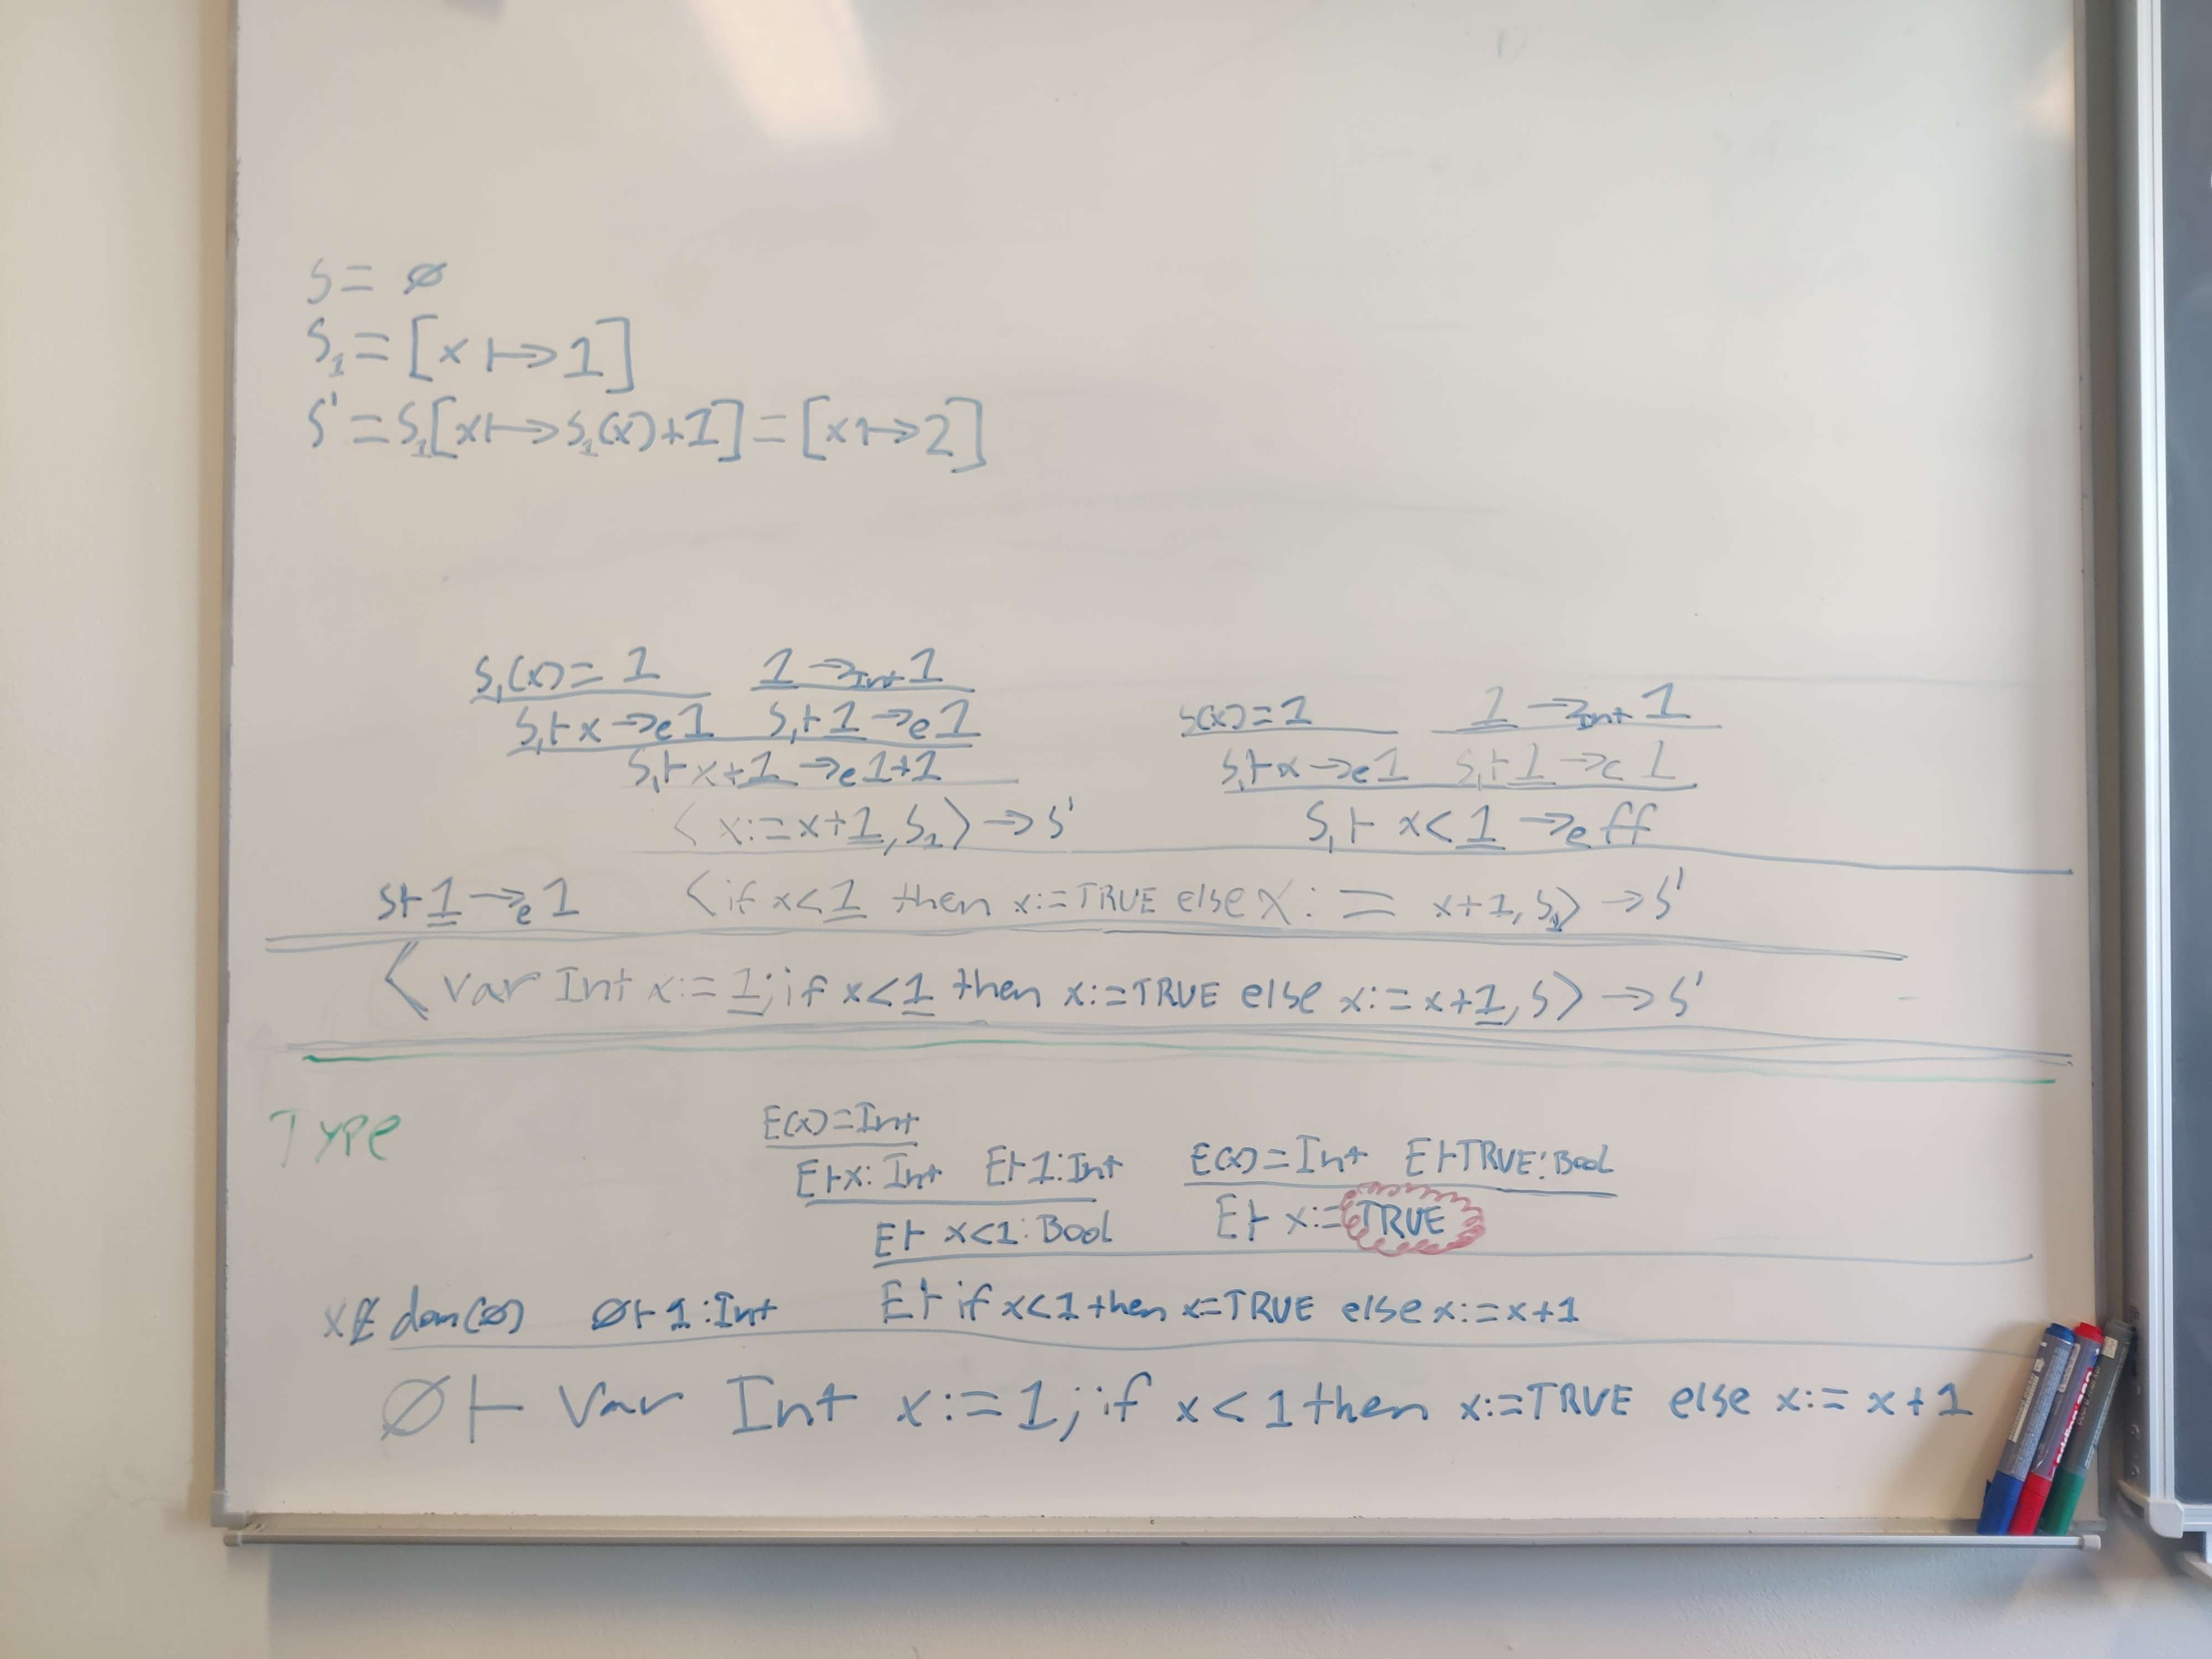 S = ∅
S₁ = [x ↦ 1]
S' = S₁[x ↦ S₁(x)+1] = [x ↦ 2]
S₁(x) = 1    1 →Int 1
S₁ ⊢ x →e 1    S₁ ⊢ 1 →e 1
S₁ ⊢ x+1 →e 1+1
⟨x:=x+1, S₁⟩ → S'
S(x) = 1    1 →Int 1
S₁ ⊢ x →e 1    S₁ ⊢ 1 →e 1
S₁ ⊢ x < 1 →e ff
S ⊢ 1 →e 1    ⟨if x<1 then x:=TRUE else x := x+1, S₁⟩ → S'
⟨var Int x:= 1; if x<1 then x:=TRUE else x:=x+1, S⟩ → S'
TYPE
E(x)=Int
E⊢x: Int    E⊢1:Int
E⊢ x<1: Bool
E(x)=Int    E⊢TRUE:Bool
E⊢ x:=TRUE
x∉dom(∅)    ∅⊢1:Int    E⊢ if x<1 then x=TRUE else x:=x+1
∅⊢ Var Int x:=1; if x<1 then x:=TRUE else x:= x+1